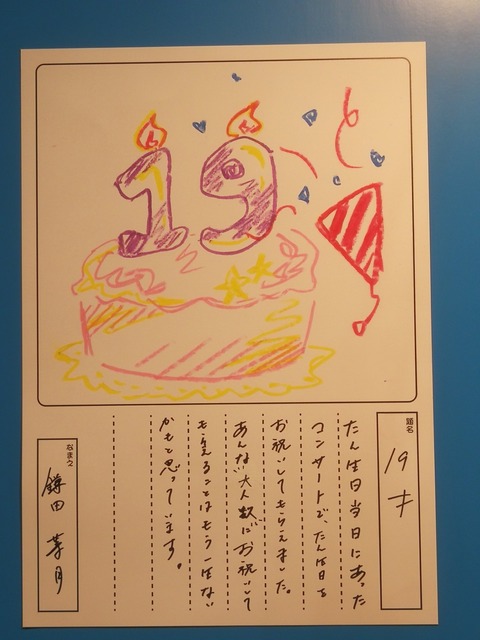 19
題名
19才
たん生日当日にあった
コンサートで、たん生日を
お祝いしてもらえました。
あんない大人数にお祝いして
もらえることはもう一生ない
かもと思っています。
なまえ
鎌田 芽月